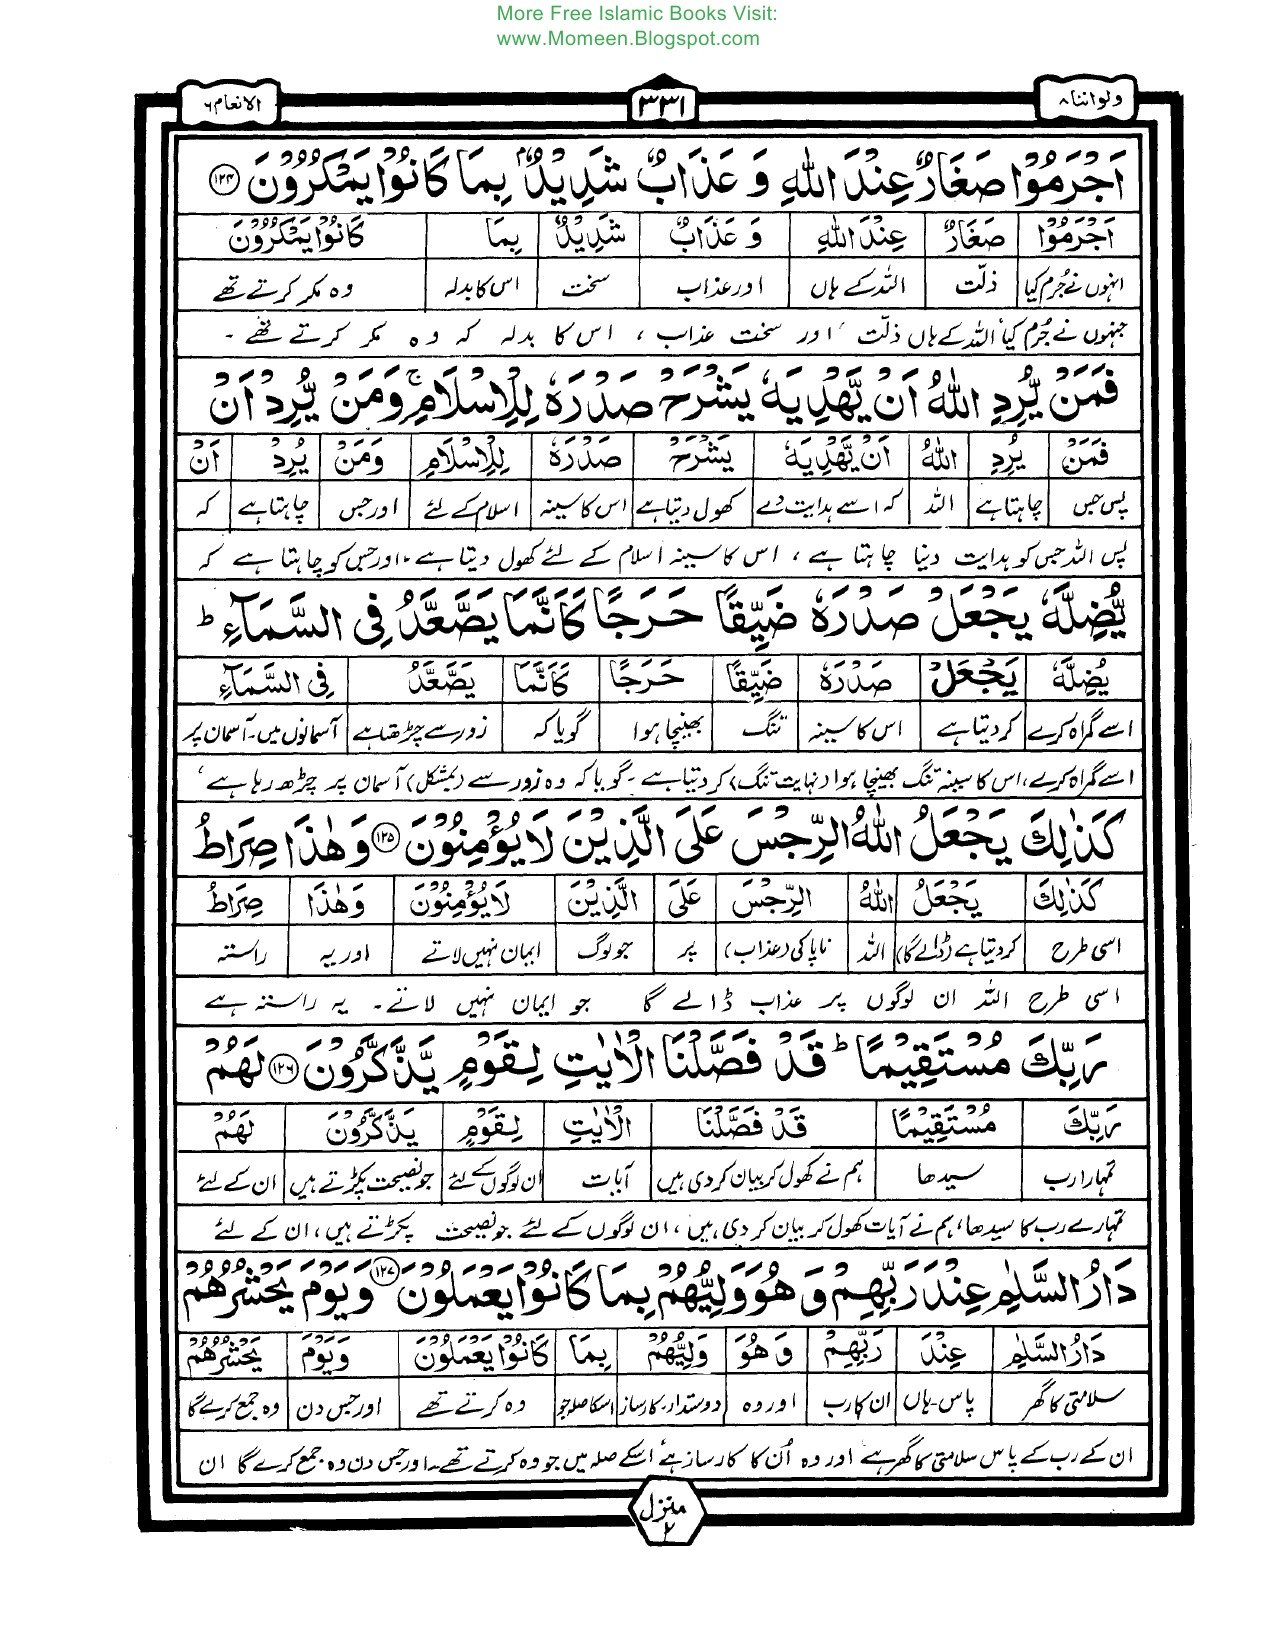 More Free Islamic Books Visit:
www.Momeen.Blogspot.com
ولواننا ۸
۳۳۱
الانعام ۶
اَجْرَمُوْا صَغَارٌ عِنْدَ اللّٰهِ وَ عَذَابٌ شَدِيْدٌۢ بِمَا كَانُوْا يَمْكُرُوْنَ ﴿۱۲۴﴾
اَجْرَمُوْا صَغَارٌ عِنْدَ اللّٰهِ وَ عَذَابٌ شَدِيْدٌ بِمَا كَانُوْا يَمْكُرُوْنَ
انہوں نے جُرم کیا ذلّت اللہ کے ہاں اور عذاب سخت اس کا بدلہ وہ مکر کرتے تھے
جنہوں نے جُرم کیا اللہ کے ہاں ذلّت اور سخت عذاب ، اس کا بدلہ کہ وہ مکر کرتے تھے ۔
فَمَنْ يُّرِدِ اللّٰهُ اَنْ يَّهْدِيَهٗ يَشْرَحْ صَدْرَهٗ لِلْاِسْلَامِ ۚ وَمَنْ يُّرِدْ اَنْ
فَمَنْ يُرِدِ اللّٰهُ اَنْ يَّهْدِيَهٗ يَشْرَحْ صَدْرَهٗ لِلْاِسْلَامِ وَمَنْ يُرِدْ اَنْ
پس جس چاہتا ہے اللہ کہ اسے ہدایت دے کھول دیتا ہے اس کا سینہ اسلام کے لئے اور جس چاہتا ہے کہ
پس اللہ جس کو ہدایت دینا چاہتا ہے ، اس کا سینہ اسلام کے لئے کھول دیتا ہے ، اور جس کو چاہتا ہے کہ
يُّضِلَّهٗ يَجْعَلْ صَدْرَهٗ ضَيِّقًا حَرَجًا كَاَنَّمَا يَصَّعَّدُ فِى السَّمَآءِ ؕ
يُضِلَّهٗ يَجْعَلْ صَدْرَهٗ ضَيِّقًا حَرَجًا كَاَنَّمَا يَصَّعَّدُ فِى السَّمَآءِ
اسے گمراہ کرے کر دیتا ہے اس کا سینہ تنگ بھینچا ہوا گویا کہ زور سے چڑھتا ہے آسمانوں میں۔آسمان پر
اسے گمراہ کرے، اس کا سینہ تنگ بھینچا ہوا (نہایت تنگ) کر دیتا ہے ۔ گویا کہ وہ زور سے (بمشکل) آسمان پر چڑھ رہا ہے ،
كَذٰلِكَ يَجْعَلُ اللّٰهُ الرِّجْسَ عَلَى الَّذِيْنَ لَا يُؤْمِنُوْنَ ﴿۱۲۵﴾ وَهٰذَا صِرَاطُ
كَذٰلِكَ يَجْعَلُ اللّٰهُ الرِّجْسَ عَلَى الَّذِيْنَ لَا يُؤْمِنُوْنَ وَهٰذَا صِرَاطُ
اسی طرح کر دیتا ہے (ڈالے گا) اللہ ناپاکی (عذاب) پر جو لوگ ایمان نہیں لاتے اور یہ راستہ
اسی طرح اللہ ان لوگوں پر عذاب ڈالے گا جو ایمان نہیں لاتے ۔ یہ راستہ ہے
رَبِّكَ مُسْتَقِيْمًا ؕ قَدْ فَصَّلْنَا الْاٰيٰتِ لِقَوْمٍ يَّذَّكَّرُوْنَ ﴿۱۲۶﴾ لَهُمْ
رَبِّكَ مُسْتَقِيْمًا قَدْ فَصَّلْنَا الْاٰيٰتِ لِقَوْمٍ يَذَّكَّرُوْنَ لَهُمْ
تمہارا رب سیدھا ہم نے کھول کر بیان کر دی ہیں آیات ان لوگوں کے لئے جو نصیحت پکڑتے ہیں ان کے لئے
تمہارے رب کا سیدھا، ہم نے آیات کھول کر بیان کر دی ہیں ، ان لوگوں کے لئے جو نصیحت پکڑتے ہیں ، ان کے لئے
دَارُ السَّلٰمِ عِنْدَ رَبِّهِمْ وَهُوَ وَلِيُّهُمْ بِمَا كَانُوْا يَعْمَلُوْنَ ﴿۱۲۷﴾ وَيَوْمَ يَحْشُرُهُمْ
دَارُ السَّلٰمِ عِنْدَ رَبِّهِمْ وَهُوَ وَلِيُّهُمْ بِمَا كَانُوْا يَعْمَلُوْنَ وَيَوْمَ يَحْشُرُهُمْ
سلامتی کا گھر پاس۔ہاں ان کا رب اور وہ دوستدار۔کارساز اسکا صلہ جو وہ کرتے تھے اور جس دن وہ جمع کرے گا
ان کے رب کے پاس سلامتی کا گھر ہے اور وہ اُن کا کارساز ہے اسکے صلہ میں جو وہ کرتے تھے۔ اور جس دن وہ جمع کرے گا ان
منزل ۲